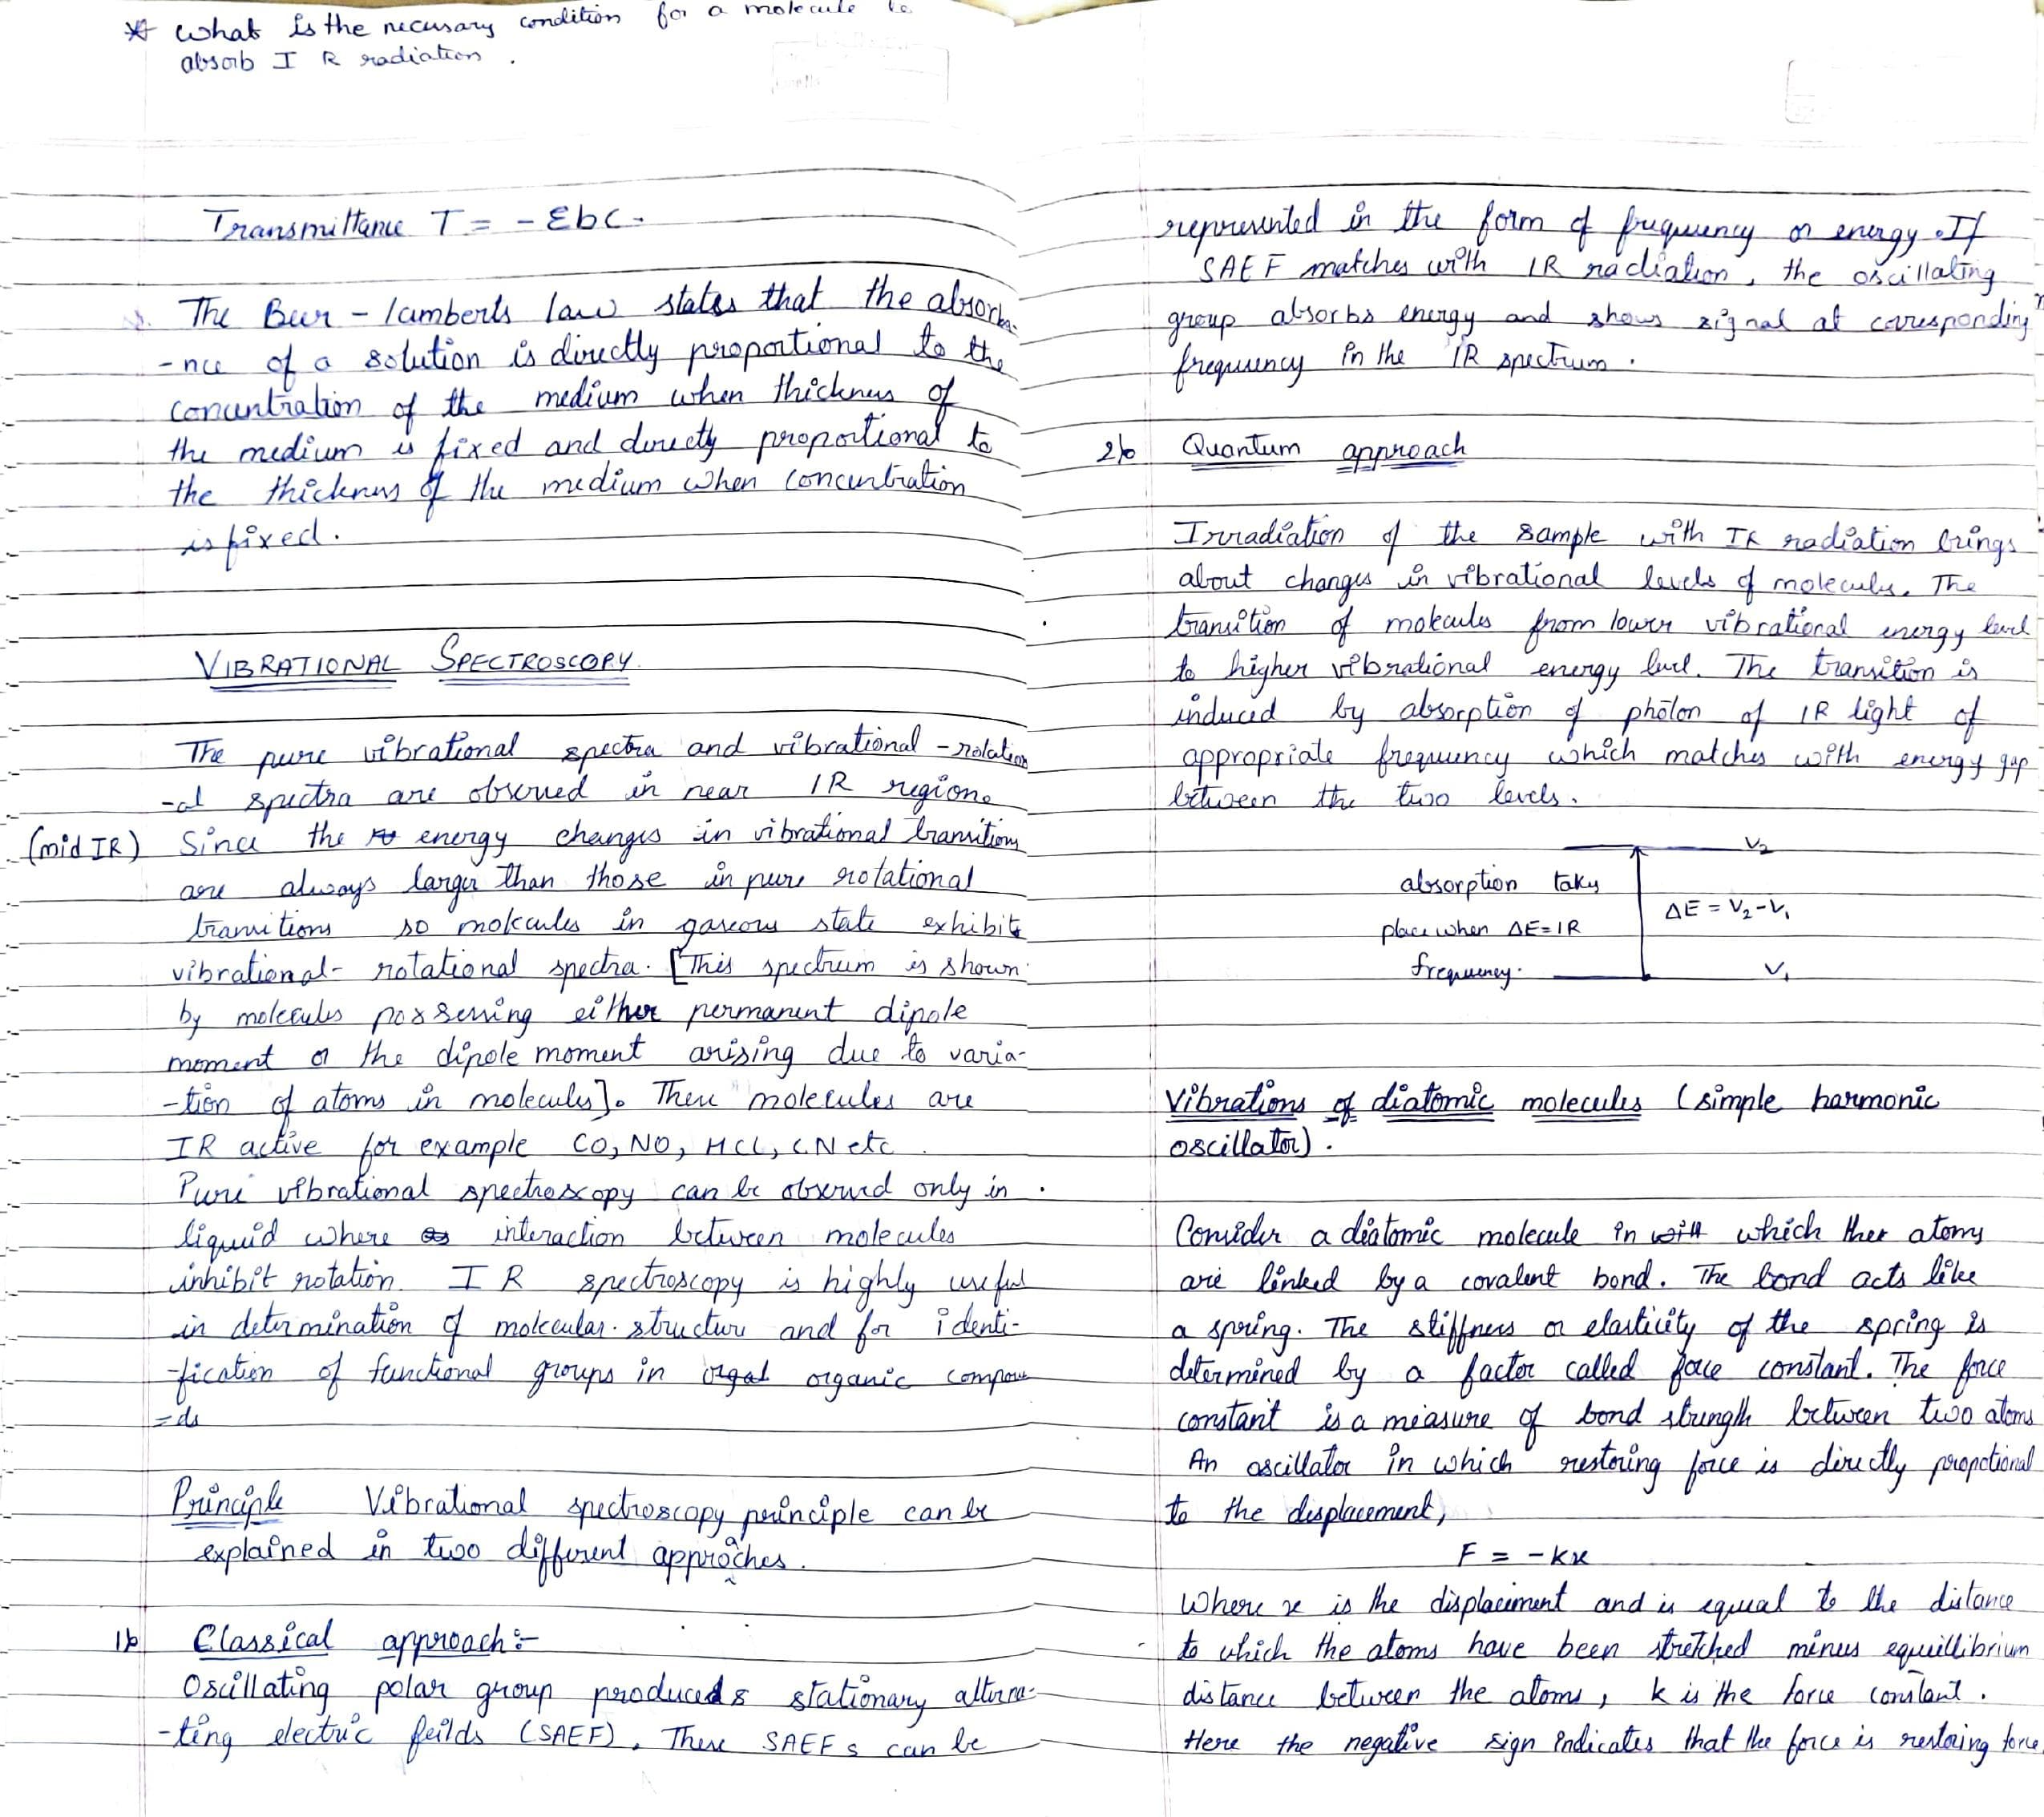 * What is the necessary condition for a molecule to
absorb I R radiation .
Transmittance T = - εbc.
The Beer - lamberts law states that the absorba-
-nce of a solution is directly proportional to the
concentration of the medium when thickness of
the medium is fixed and directly proportional to
the thickness of the medium when concentration
is fixed.
VIBRATIONAL SPECTROSCOPY.
The pure vibrational spectra and vibrational - rotation
-al spectra are observed in near IR region.
(mid IR) Since the energy changes in vibrational transitions
are always larger than those in pure rotational
transitions so molecules in gaseous state exhibit
vibrational- rotational spectra. [This spectrum is shown
by molecules possessing either permanent dipole
moment or the dipole moment arising due to varia-
-tion of atoms in molecules]. These molecules are
IR active for example CO, NO, HCl, CN etc .
Pure vibrational spectroscopy can be observed only in
liquid where interaction between molecules
inhibit rotation. I R spectroscopy is highly useful
in determination of molecular structure and for identi-
-fication of functional groups in orgal organic compou
=ds
Principle Vibrational spectroscopy principle can be
explained in two different approaches.
1) Classical approach :-
Oscillating polar group produceds stationary alterna-
-ting electric feilds (SAEF). These SAEFs can be
represented in the form of frequency or energy. If
SAEF matches with IR radiation, the oscillating
group absorbs energy and shows signal at corresponding
frequency in the IR spectrum.
2) Quantum approach
Irradiation of the sample with IR radiation brings
about changes in vibrational levels of molecules. The
transition of molecules from lower vibrational energy level
to higher vibrational energy level. The transition is
induced by absorption of photon of IR light of
appropriate frequency which matches with energy gap
between the two levels.
V2
absorption takes
ΔE = V2-V1
place when ΔE=IR
frequency.
V1
Vibrations of diatomic molecules (simple harmonic
oscillator).
Consider a diatomic molecule in with which ther atoms
are linked by a covalent bond. The bond acts like
a spring. The stiffness or elasticity of the spring is
determined by a factor called force constant. The force
constant is a measure of bond strength between two atoms
An oscillator in which restoring force is directly propotional
to the displacement,
F = -kx
Where x is the displacement and is equal to the distance
to which the atoms have been stretched minus equillibrium
distance between the atoms, k is the force constant.
Here the negative sign indicates that the force is restoring force